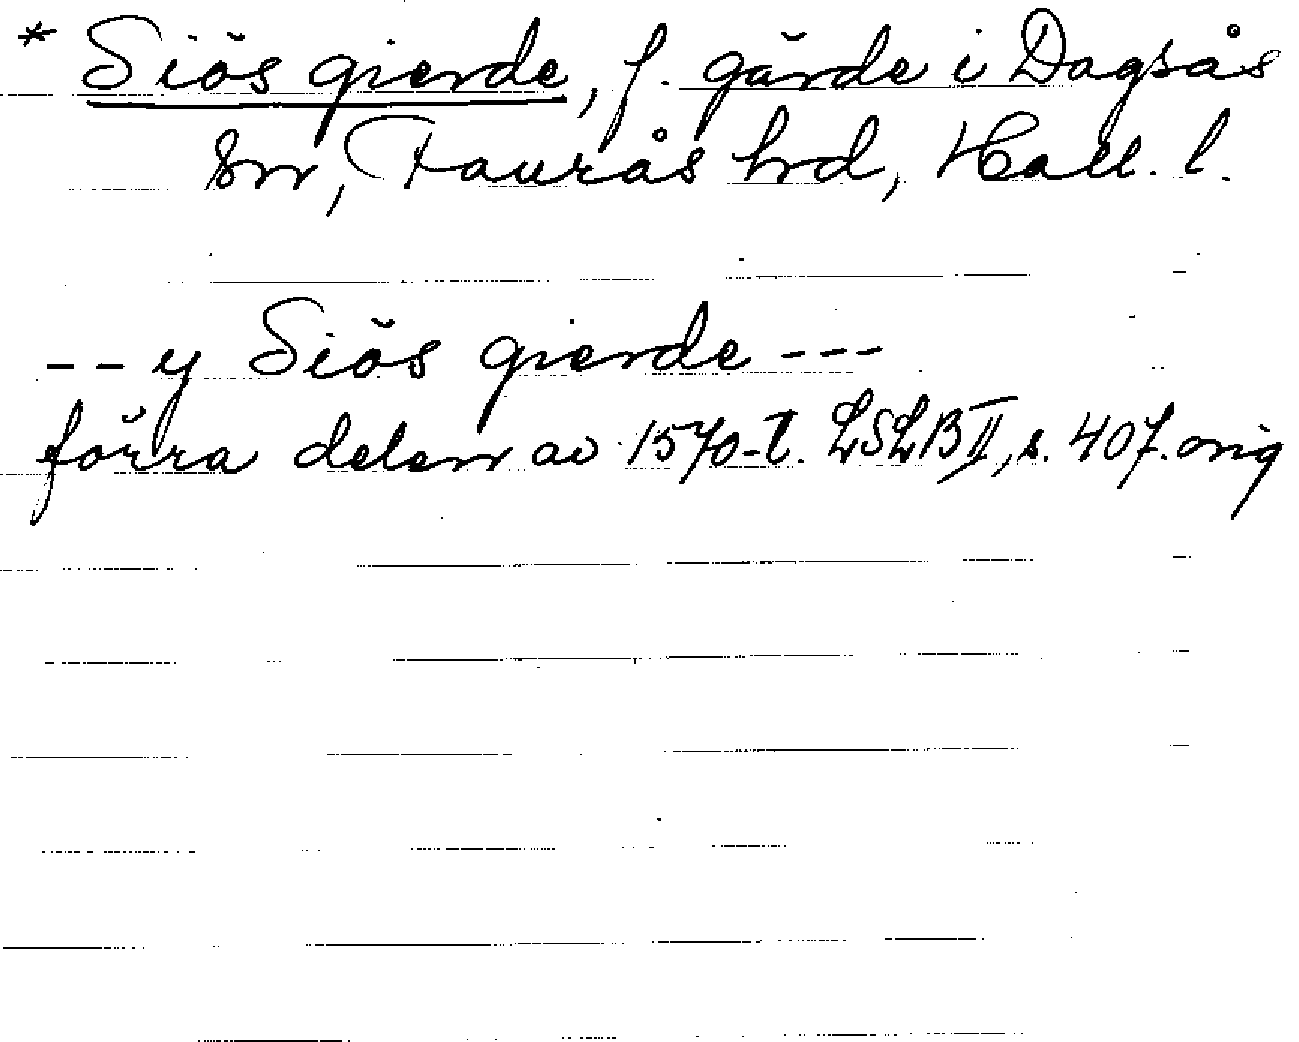 * Siös gierde, f. gärde i Dagsås
sn, Faurås hrd, Hall. l.
-- y Siös gierde ---
förra delen av 1570-t. LSLB II, s. 407. orig